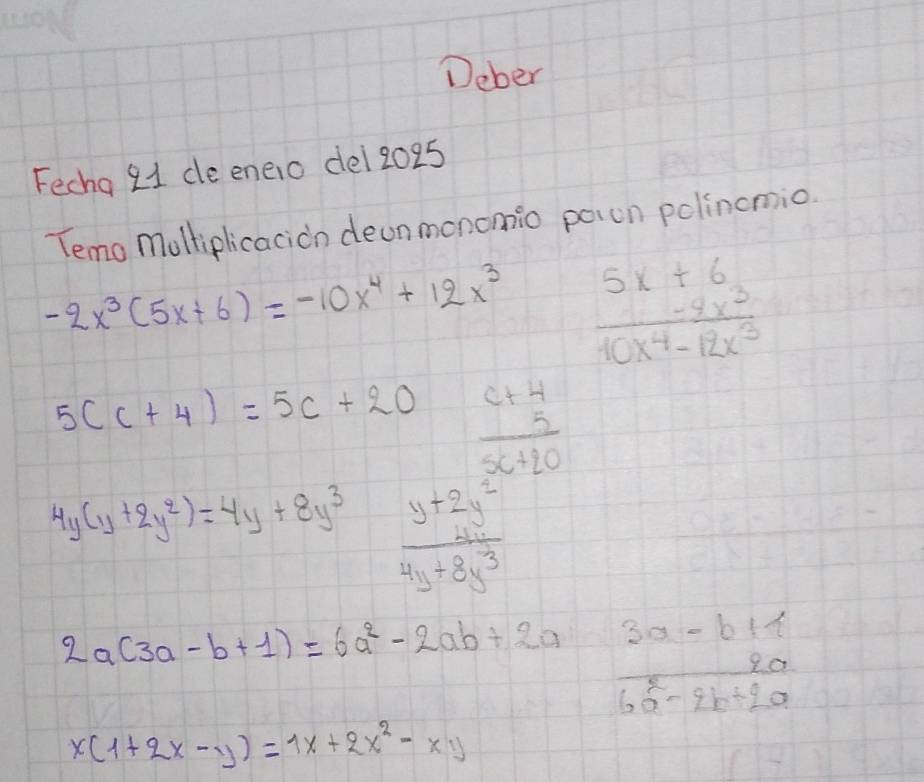 Deber
Fecha 21 de enero del 2025
Tema Multiplicación de un monomio por un polinomio.
-2x³(5x+6) = -10x⁴ + 12x³
5x + 6
-2x³
10x⁴ - 12x³
5(c + 4) = 5c + 20
c + 4
5
5c+20
4y(y+2y²) = 4y + 8y³
y+2y²
4y
4y+8y³
2a(3a - b + 1) = 6a² - 2ab + 2a
3a - b + 1
2a
6a² - 2b + 2a
x(1 + 2x - y) = 1x + 2x² - xy